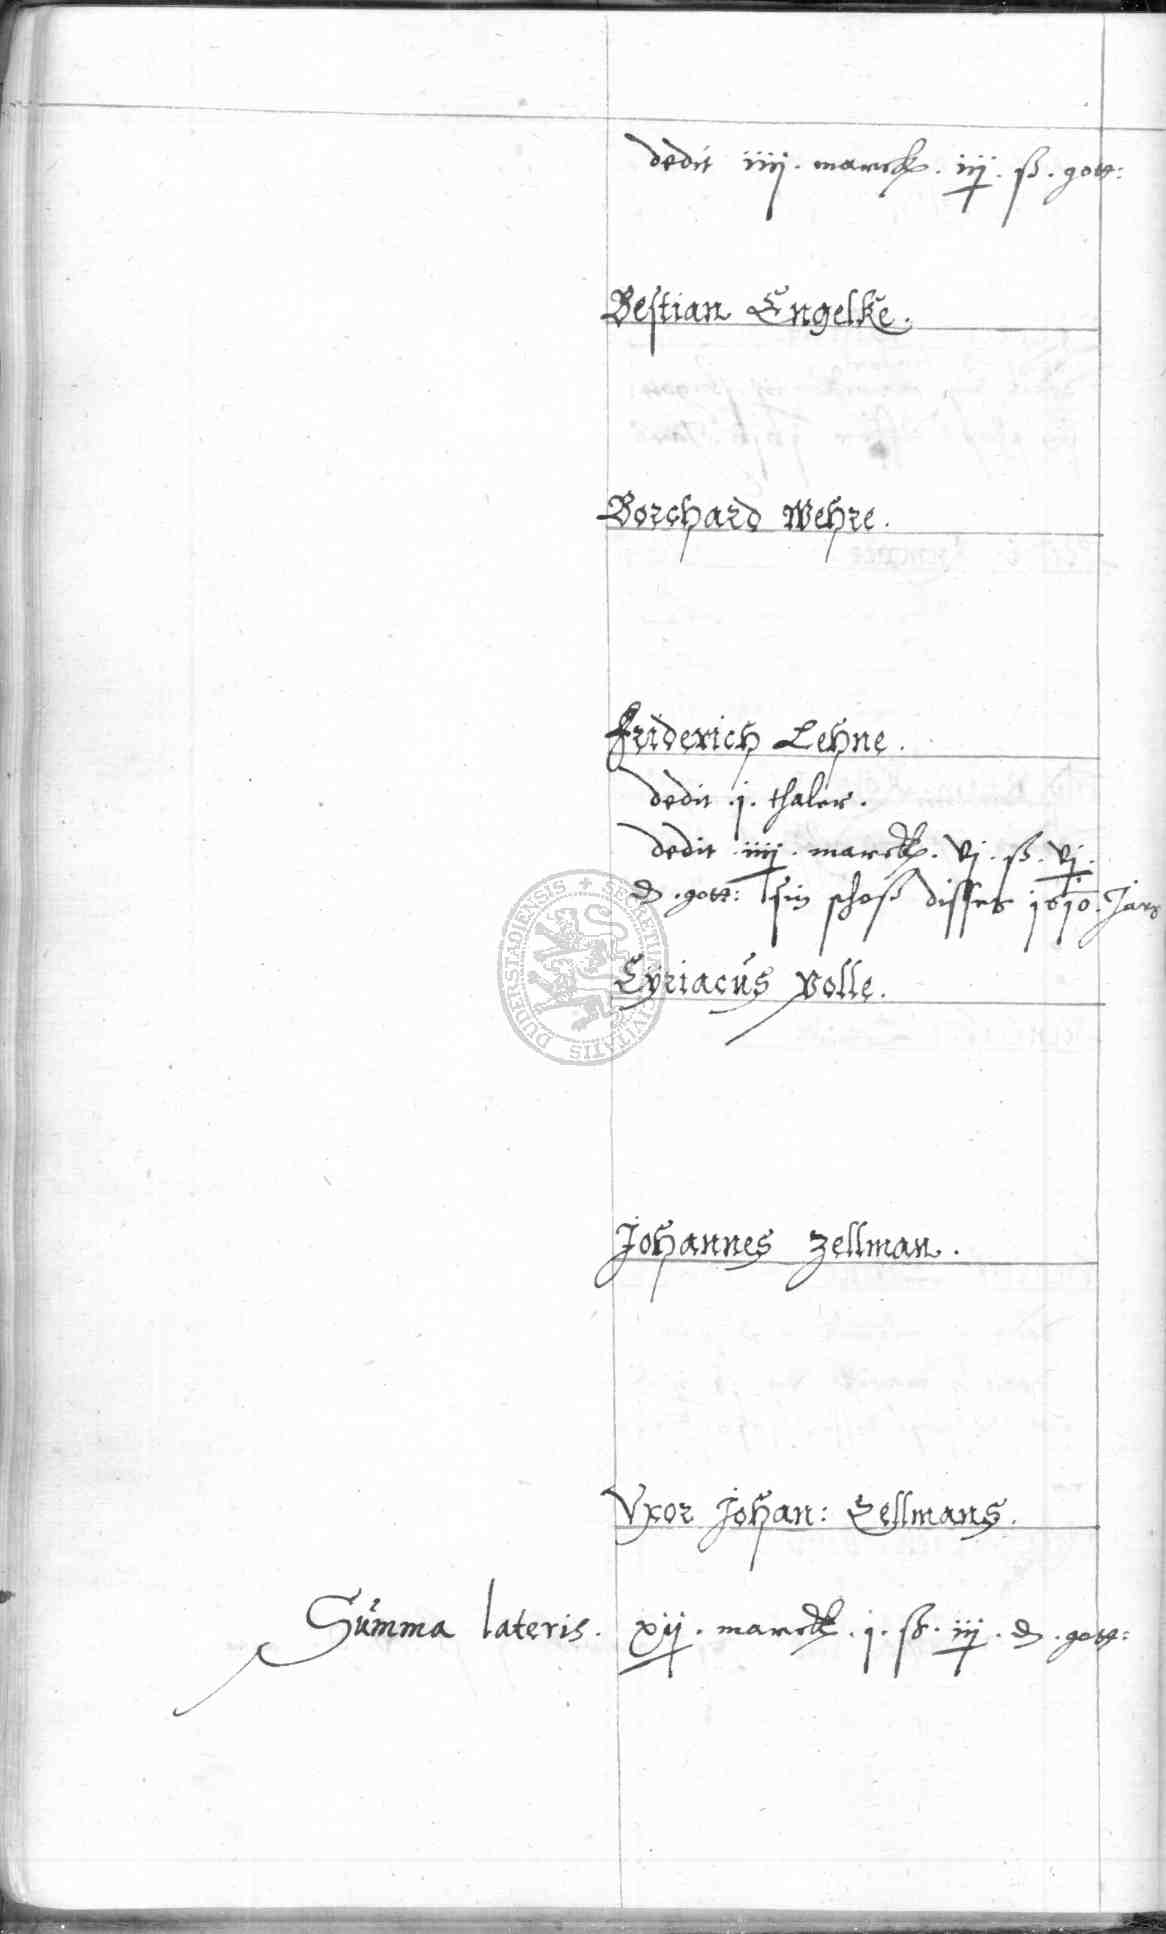 dedit iiij. marck. iij. ß. gott:
Bestian Engelke.
Borchard Wehre.
Friderich Lehne.
dedit .j. thaler.
dedit .iiij. marck. vj. ß. vj.
d. gott: sin schoß disses 1610. Jars
Cyriacus Volle.
Johannes Zellman.
Vxor Johan: Zellmans.
Summa lateris. xij. marck. j. ß. iij. d. gott:
SECRETUM CIVITATIS DUDERSTADIENSIS